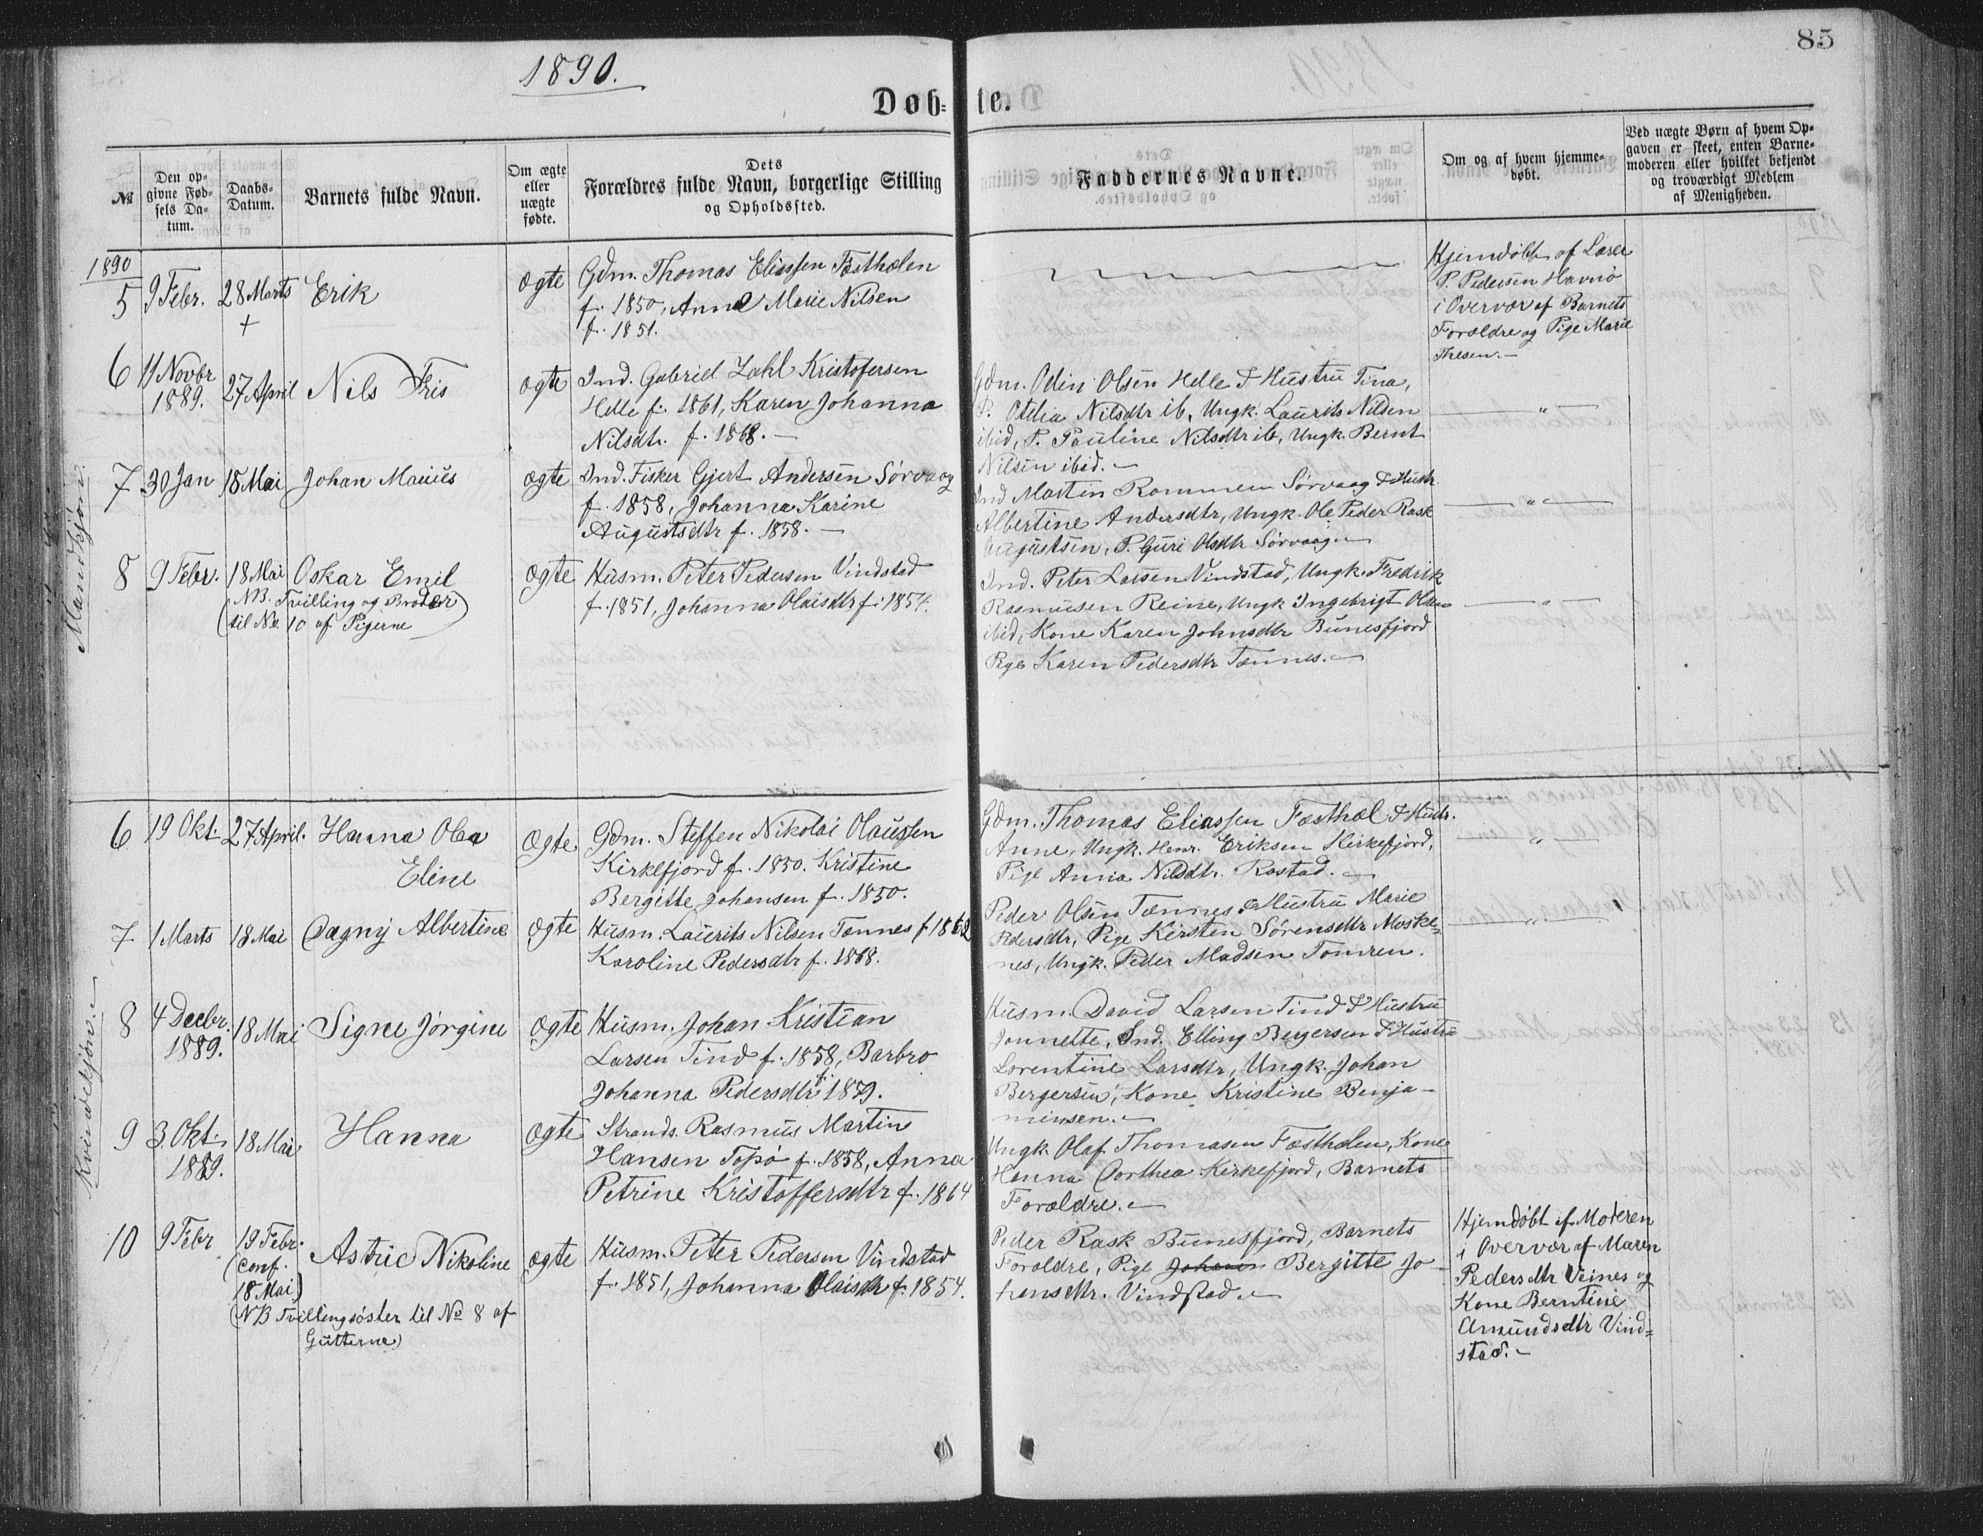 1890.
85
Døb-
te.
№
Den op-
givne Fød-
sels Da-
tum.
Daabs-
Datum.
Barnets fulde Navn.
Om ægte
eller
uægte
fødte.
Dets
Forældres fulde Navn, borgerlige Stilling
og Opholdssted.
Faddernes Navne.
Om og af hvem hjemme-
døbt.
Ved uægte Børn af hvem Op-
gaven er skeet, enten Barne-
moderen eller hvilket bekjendt
og troværdigt Medlem
af Menigheden.
Mandkjøn.
1890
5
9 Febr.
28 Marts
+
Erik
ægte
Gdm. Thomas Eliassen Fæsthælen
f. 1850, Anne Marie Nilsen
f. 1851.
Hjemdøbt af Lærer
P. Pedersen Havnø
i Overvær af Barnets
Forældre og Pige Marie
Thesen.
6
11 Novbr
1889.
27 April
Nils Friis
ægte
Ind. Gabriel Zahl Kristofersen
Helle f. 1861, Karen Johanna
Nilsdtr. f. 1868.
Gdm. Odin Olsen Helle & Hustru Tina,
P. Otelia Nilsdtr ib, Ungk. Laurits Nilsen
ibid, P. Pauline Nilsdtr ib, Ungk. Bernt
Nilsen ibid.
"
7
30 Jan
18 Mai
Johan Marius
ægte
Ind. Fisker Gjert Andersen Sørvaag
f. 1858, Johanna Karine
Augustsdtr f. 1858.
Ind Martin Rommen Sørvaag & Hustr
Albertine Andersdtr, Ungk. Ole Peder Rask
Augustsen, P. Guri Olsdtr Sørvaag.
"
8
9 Febr.
18 Mai
Oskar Emil
(NB. Tvilling og Broder
til No 10 af Pigerne)
ægte
Husm. Peter Pedersen Vindstad
f. 1851, Johanna Olaisdtr f. 1854.
Ind. Peter Larsen Vindstad, Ungk. Fredrik
Rasmussen Reine, Ungk Ingebrigt Olsen
ibid, Kone Karen Johnsdtr Bunesfjord
Pige Karen Pedersdtr Tennes.
"
Kvindekjøn.
6
19 Okt.
27 April.
Hanna Olea
Eline
ægte
Gdm. Steffen Nikolai Olaussen
Kirkefjord f. 1850. Kristine
Bergitte Johansen f. 1850.
Gdm. Thomas Eliassen Fæsthæl & Hustr.
Anne, Ungk. Henr. Eriksen Kirkefjord,
Pige Anna Nilsdtr. Rostad.
"
7
1 Marts
18 Mai
Dagny Albertine
ægte
Husm. Laurits Nilsen Tennes f 1862
Karoline Pedersdtr f. 1868.
Peder Olsen Tennes & Hustru Marie
Pedersdtr, Pige Kirsten Sørensdtr Moske-
nes, Ungk. Peder Madsen Tomren.
"
8
4 Decbr.
1889.
18 Mai
Signe Jørgine
ægte
Husm. Johan Kristian
Larsen Tind f. 1858, Barbro
Johanna Pedersdtr f. 1859.
Husm. David Larsen Tind & Hustru
Jonnette, Ind. Elling Bergersen & Hustru
Lorentine Larsdtr, Ungk. Johan
Bergersen, Kone Kristine Benja-
minsen.
9
3 Okt.
1889.
18 Mai
Hanna
ægte
Strands. Rasmus Martin
Hansen Topø f. 1858, Anna
Petrine Kristoffersdtr f. 1864
Ungk Olaf Thomasen Fæsthælen, Kone
Hanna Dorthea Kirkefjord, Barnets
Forældre.
10
9 Febr
19 Febr.
(conf.
18 Mai)
Astric Nikoline
(NB Tvillingsøster til No 8 af
Gutterne)
ægte
Husm. Peter Pedersen Vindstad
f. 1851, Johanna Olaisdtr f. 1854.
Peder Rask Bunesfjord, Barnets
Forældre, Pige Johann Bergitte Jo-
hansdtr. Vindstad.
Hjemdøbt af Moderen
i Overvær af Maren
Pedersdtr Veines og
Kone Berntine
Amundsdtr Vind-
stad.